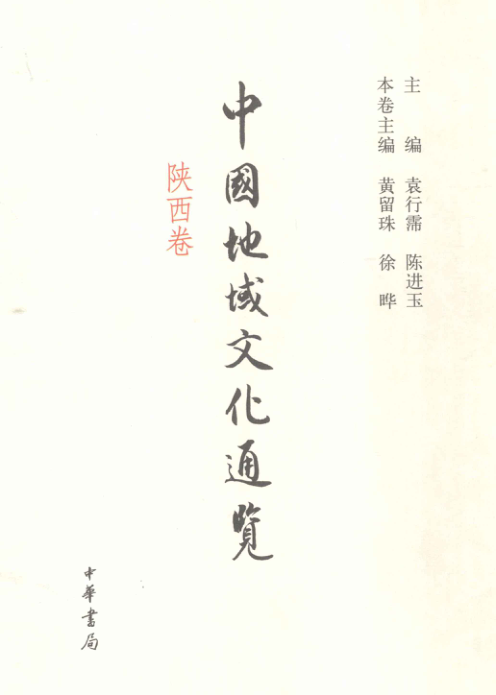 主 编 袁行霈 陈进玉
本卷主编 黄留珠 徐 晔
中國地域文化通覽
陕西卷
中華書局